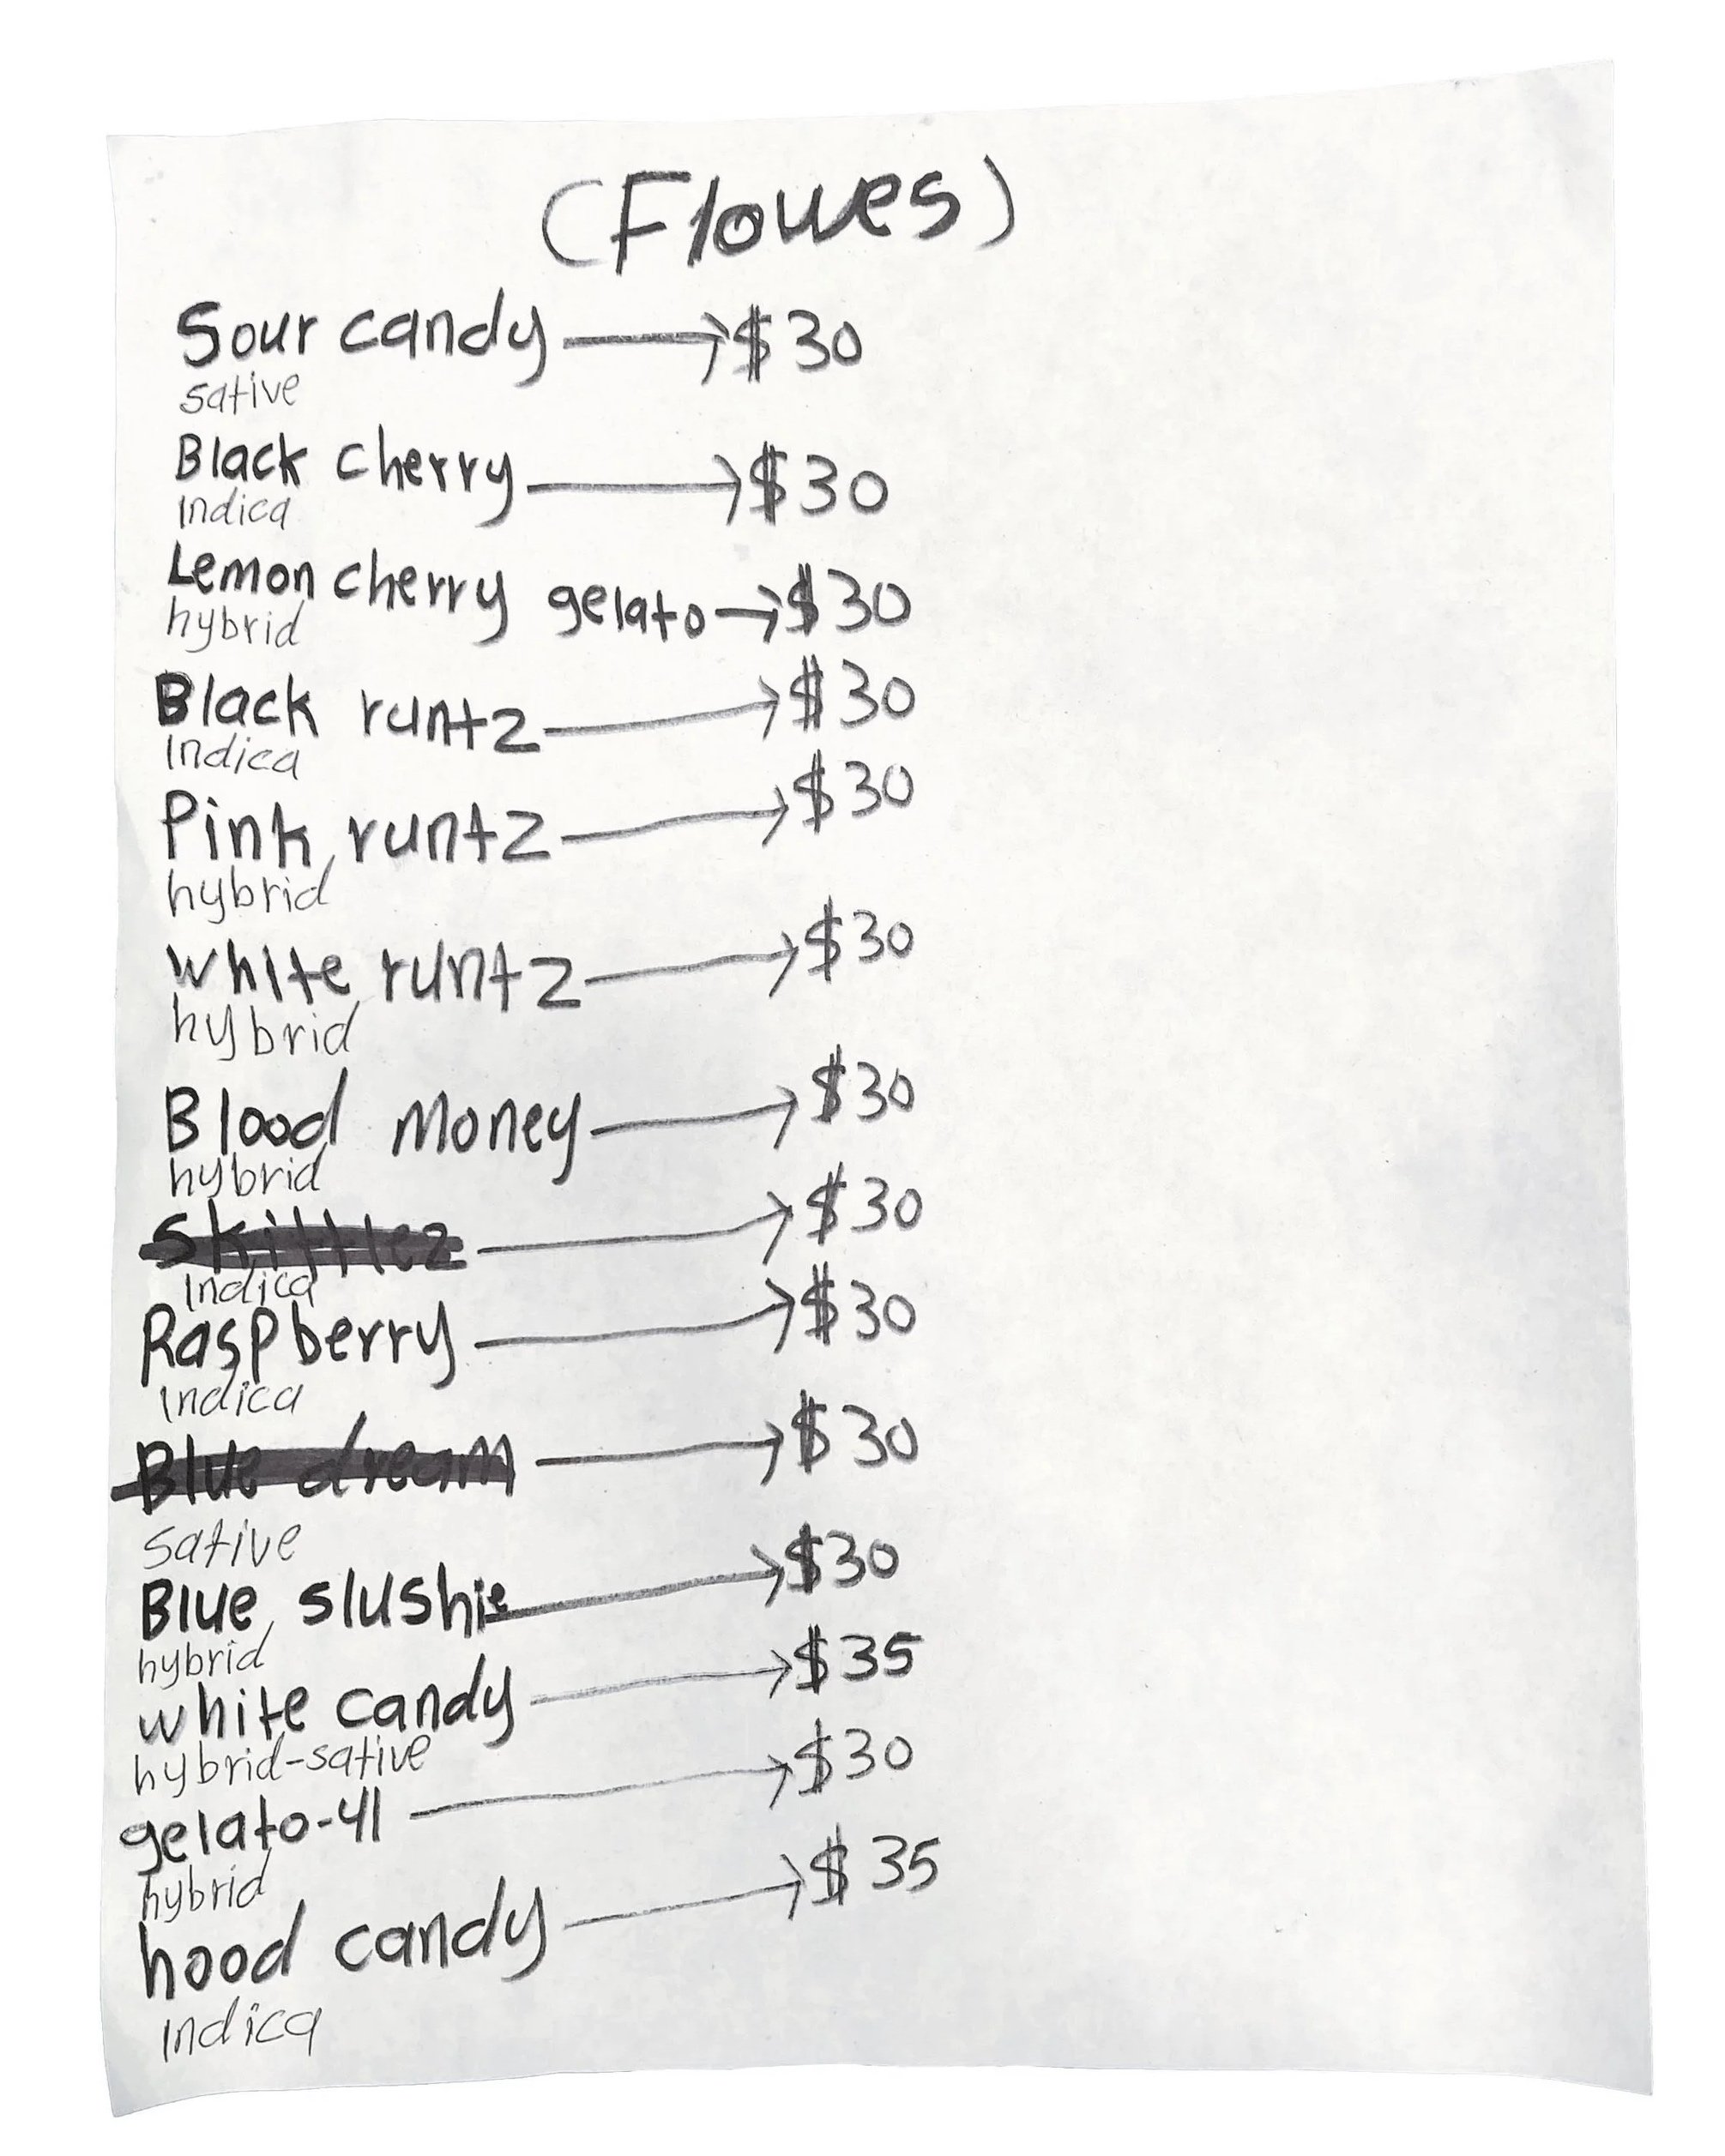 (Flowes)
Sour candy → $30
sative
Black cherry → $30
Indica
Lemon cherry gelato → $30
hybrid
Black runtz → $30
Indica
Pink runtz → $30
hybrid
white runtz → $30
hybrid
Blood money → $30
hybrid
skittlez → $30
Indica
Raspberry → $30
Indica
Blue dream → $30
sative
Blue slushie → $30
hybrid
white candy → $35
hybrid-sative
gelato-41 → $30
hybrid
hood candy → $35
Indica